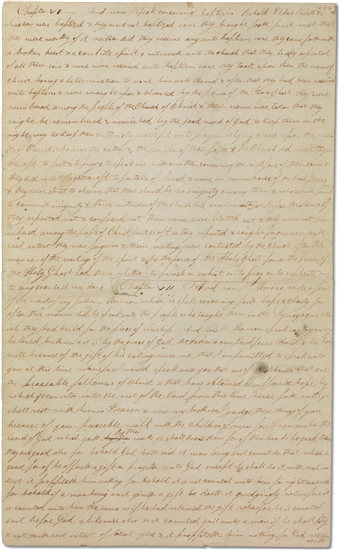 Chapter VI And now I speak concerning baptism Behold Elders Priests &
Teachers were baptised & they were not baptised save they brought forth fruit meet that
they were worthy of it neither did they receive any unto baptism save they came forth with
a broken heart & a contrite spirit & witnessed unto the church that they truly repented
of all their sins & none were received unto baptism save they took upon them the name of
Christ having a determination to serve him unto the end & after that they had been received
unto baptism & were wrought upon & cleansed by the power of the Holy Ghost they were
numbered among the people of the Church of Christ & their names were taken that they
might be remembered & nourished by the good word of God to keep them in the
right way to keep them continually watchful unto prayer relying alone upon the mer
its of Christ who was the author & the finisher of their faith & the Church did meet together
oft to fast & to pray & to speak one with another concerning the welfare of their souls &
they did meet together oft to partake of bread & wine in remembrance of the Lord Jesus
& they were strict to observe that there should be no iniquity among them & whoso was found
to commit iniquity & three witnesses of the church did condemn them before the elders & if
they repented not & confessed not their names were blotted out & they were not num
bered among the people of Christ but as oft as they repented & sought forgiveness with
real intent they were forgiven & their meetings were conducted by the Church after the
manner of the workings of the spirit & by the power of the Holy Ghost for as the power of
the Holy Ghost led them whether to preach or exhort or to pray or to supplicate or
to sing even so it was done Chapter VII And now I Moroni write a few
of the words of my father Mormon which he spake concerning faith hope & charity for
after this manner did he speak unto the people as he taught them in the Synagogue wh
ich they had built for the place of worship And now I Mormon speak unto you my
beloved brethren & it is by the grace of God the Father & our Lord Jesus Christ & his holy
will because of the gift of his calling unto me that I am permitted to speak unto
you at this time wherefore I would speak unto you that are of the church that are
the peaceable followers of Christ & that have obtained a sufficient hope by
which ye can enter into the rest of the Lord from this time henceforth until ye
shall rest with him in Heaven & now my brethren I judge these things of you
because of your peaceable walk with the children of men for I remember the
word of God which saith by their works ye shall know them for if their works be good then
they are good also for behold God hath said a man being evil cannot do that which is
good for if he offereth a gift or prayeth unto God except he shall do it with real in
tent it profiteth him nothing for behold it is not counted unto him for righteousness
for behold if a man being evil giveth a gift he doeth it grudgingly wherefore it
is counted unto him the same as if he had retained the gift wherefore he is counted
evil before God & likewise also is it counted evil unto a man if he shall pray
& not with real intent of heart yea & it profiteth him nothing for God